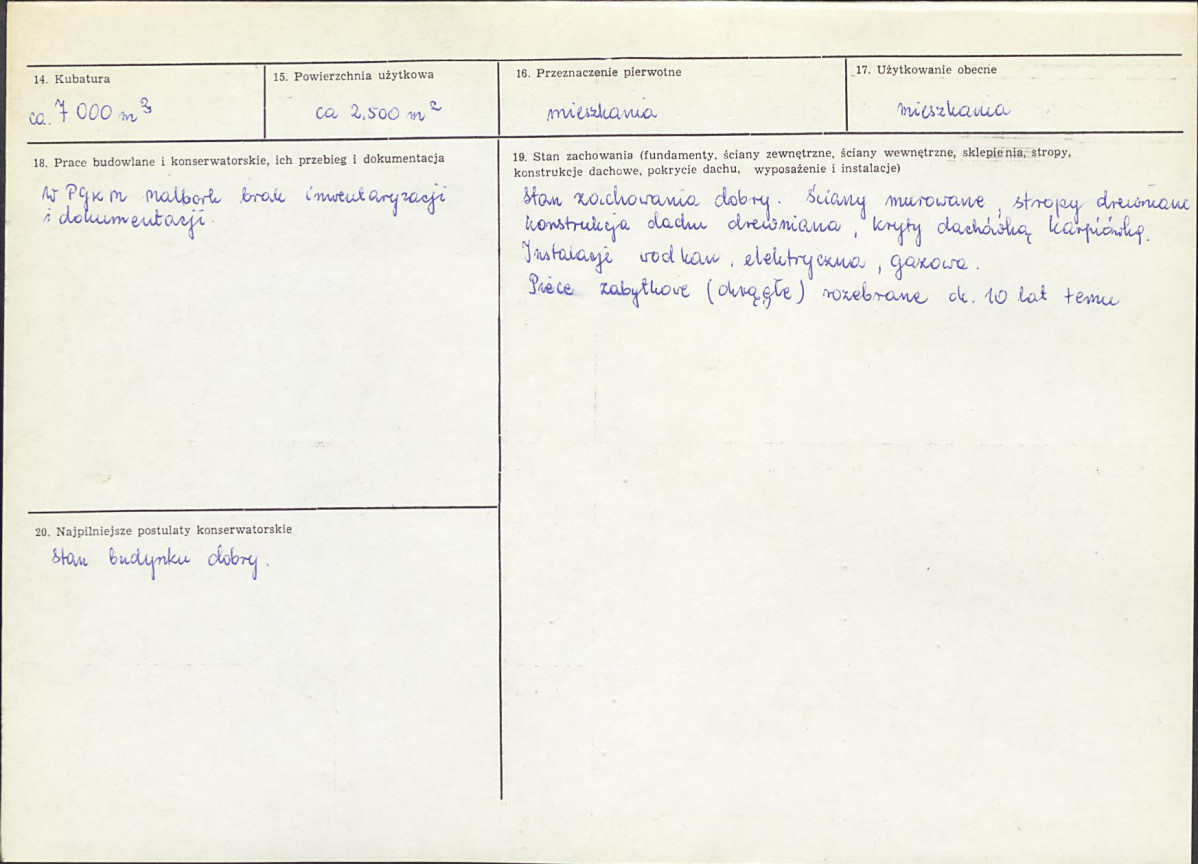 14. Kubatura
ca. 7 000 m³
15. Powierzchnia użytkowa
ca 2.500 m²
16. Przeznaczenie pierwotne
mieszkania
17. Użytkowanie obecne
mieszkania
18. Prace budowlane i konserwatorskie, ich przebieg i dokumentacja
W PGKM Malbork brak inwentaryzacji
i dokumentacji.
19. Stan zachowania (fundamenty, ściany zewnętrzne, ściany wewnętrzne, sklepienia, stropy,
konstrukcje dachowe, pokrycie dachu, wyposażenie i instalacje)
Stan zachowania dobry. Ściany murowane, stropy drewniane
konstrukcja dachu drewniana, kryty dachówką karpiówką.
Instalacje wod kan, elektryczna, gazowa.
Piece zabytkowe (okrągłe) rozebrane ok. 10 lat temu
20. Najpilniejsze postulaty konserwatorskie
Stan budynku dobry.